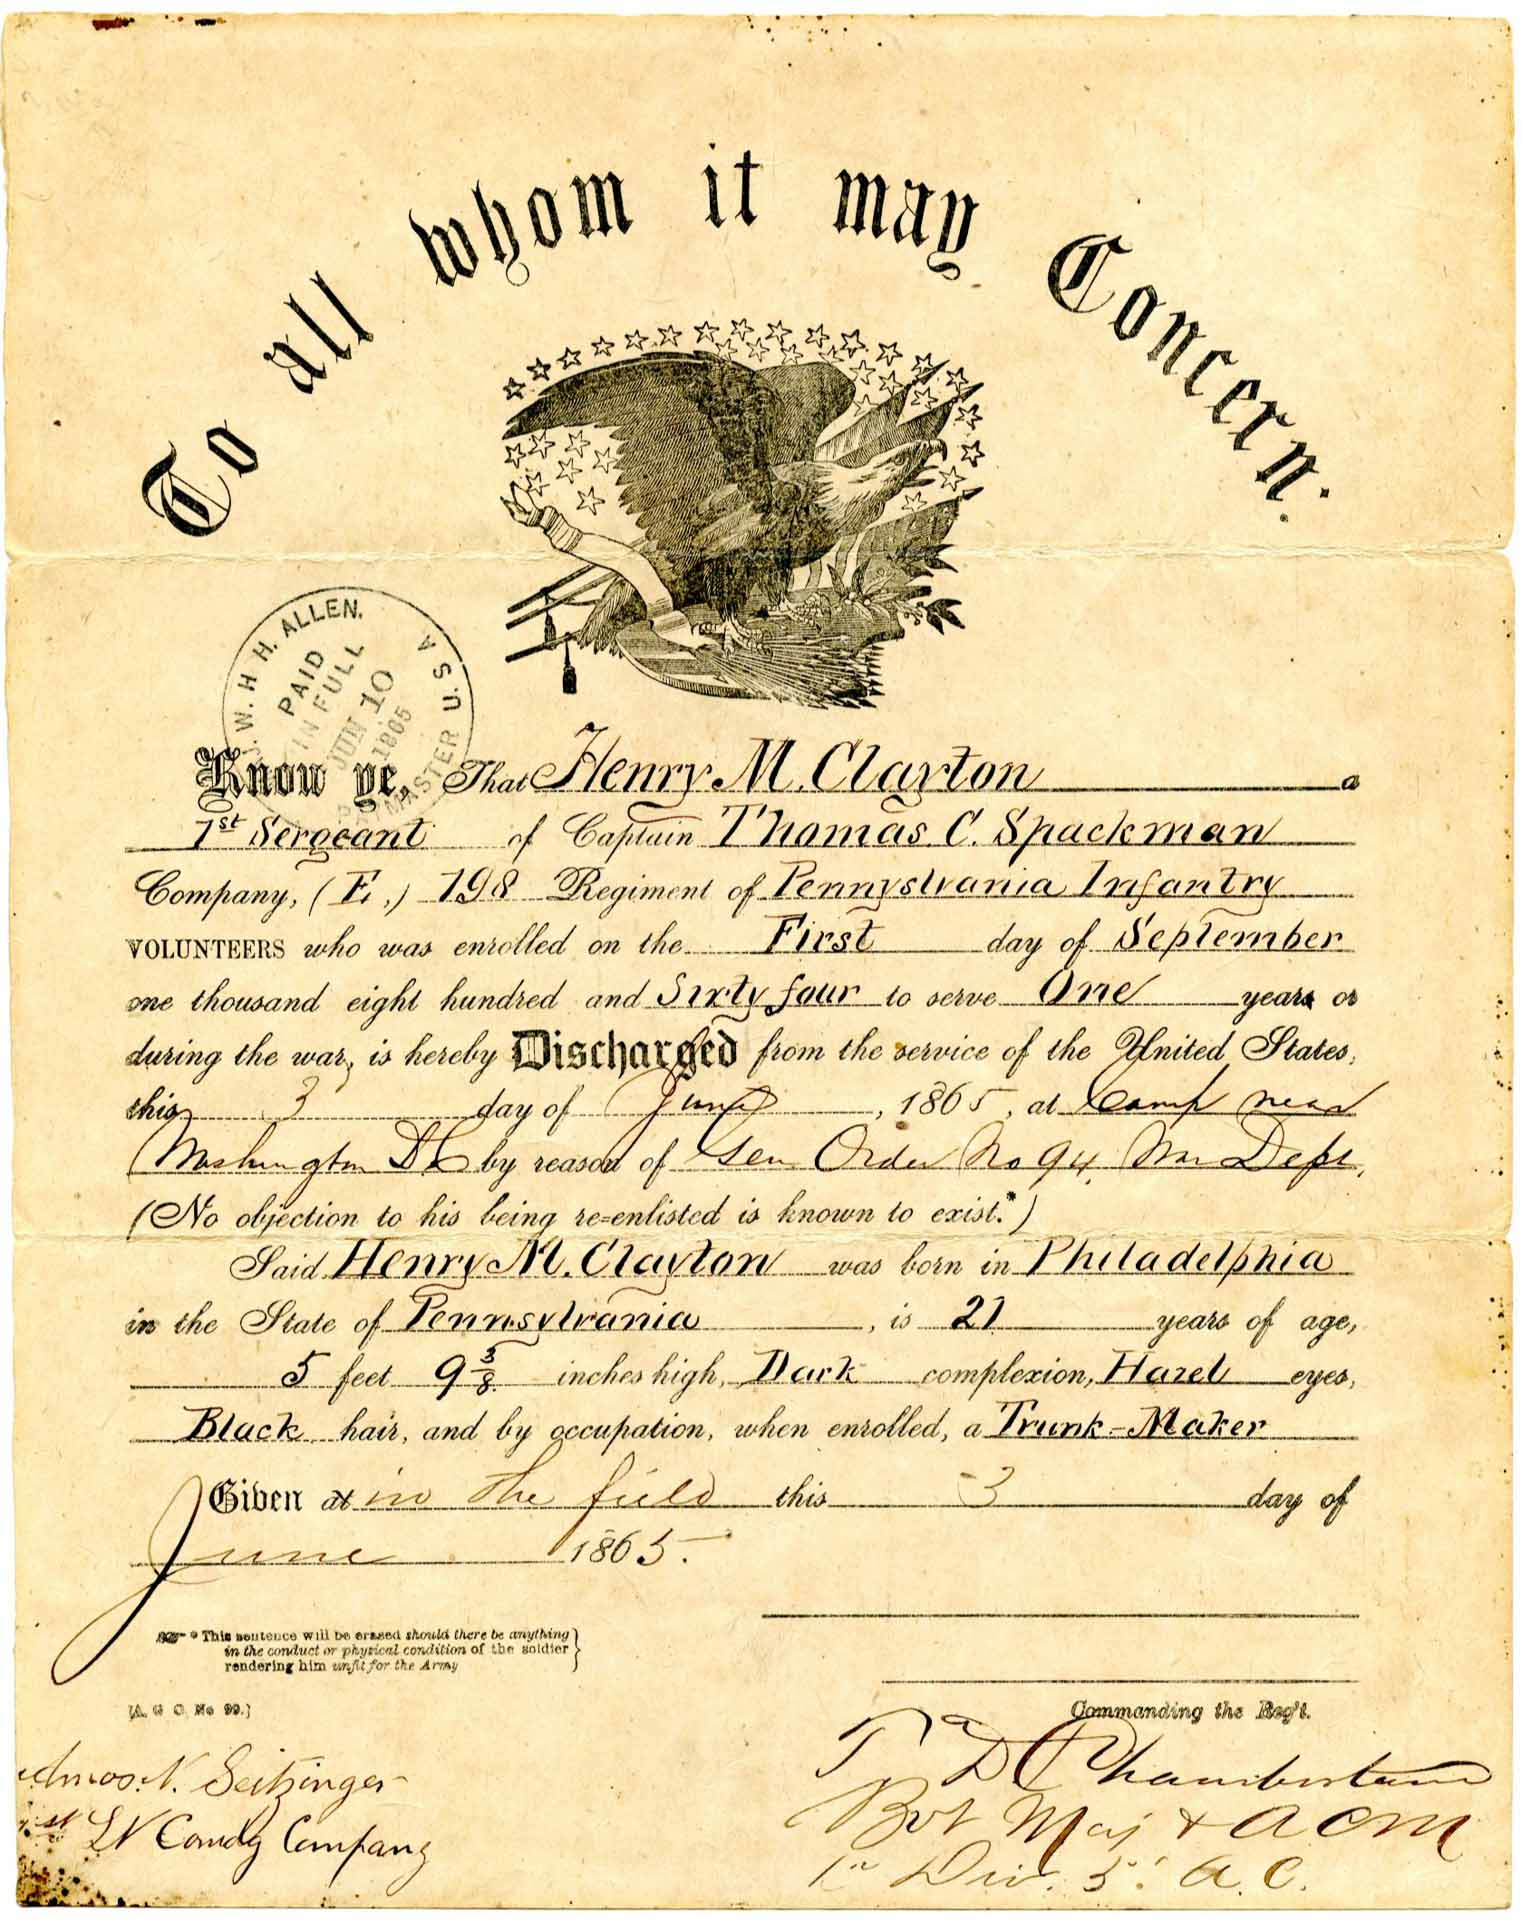 To all whom it may Concern.
W. H. H. ALLEN. MASTER U.S.A
PAID
IN FULL
JUN 10
1865
Know ye, That Henry M. Clayton a
1st Sergeant of Captain Thomas C. Spackman
Company, (E.,) 198 Regiment of Pennyslvania Infantry
VOLUNTEERS who was enrolled on the First day of September
one thousand eight hundred and Sixty four to serve One years or
during the war, is hereby Discharged from the service of the United States,
this 3 day of June, 1865, at Camp near
Washington DC by reason of Gen Order No 94, War Dept,
(No objection to his being re-enlisted is known to exist.*)
Said Henry M. Clayton was born in Philadelphia
in the State of Pennsylvania, is 21 years of age,
5 feet 9 3/8 inches high, Dark complexion, Hazel eyes,
Black hair, and by occupation, when enrolled, a Trunk-Maker
Given at in the field this 3 day of
June 1865.
* This sentence will be erased should there be anything
in the conduct or physical condition of the soldier
rendering him unfit for the Army
[A. G. O. No 99.]
Commanding the Reg't.
Amos. N. Seitzinger
1st Lt Comdg Company
T D Chamberlain
Bvt Maj & A C M
1st Div. 5' A. C.